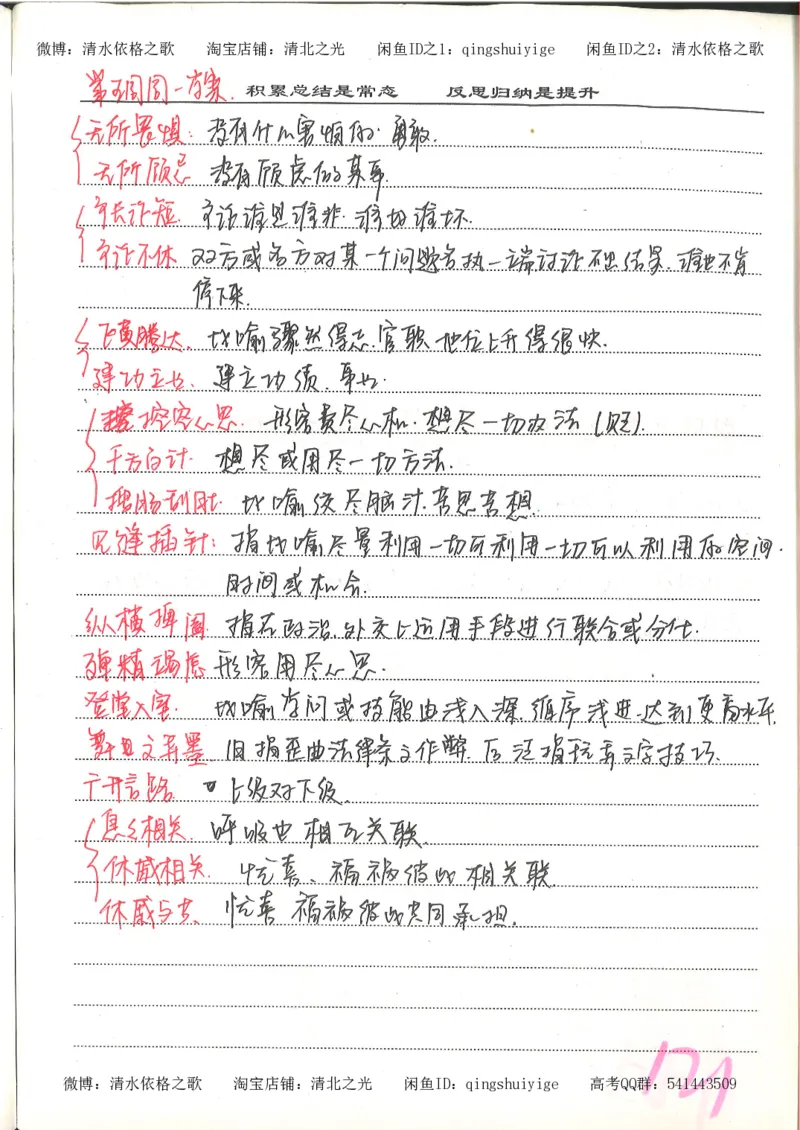 微博：清水依格之歌 淘宝店铺：清北之光 闲鱼ID之1：qingshuiyige 闲鱼ID之2：清水依格之歌
第五周周一 积累总结是常态 反思归纳是提升
无所畏惧：没有什么害怕的 勇敢.
无所顾忌 没有顾虑做某事.
争长论短 争论谁是谁非.谁好谁坏.
争论不休 双方或各方对某一个问题各执一端讨论不出结果.谁也不肯
停下来.
飞黄腾达. 比喻骤然得志.官职地位上升得很快.
建功立业. 建立功绩.事业.
挖空心思. 形容费尽心机.想尽一切办法(贬).
千方百计 想尽或用尽一切方法.
搜肠刮肚. 比喻绞尽脑汁.苦思苦想.
见缝插针：指比喻尽量利用一切可利用一切可以利用的空间.
时间或机会.
纵横捭阖 指在政治.外交上运用手段进行联合或分化.
殚精竭虑 形容用尽心思.
登堂入室. 比喻学问或技能由浅入深.循序浅进.达到更高水平.
舞文弄墨 旧指歪曲法律条文作弊.后泛指玩弄文字技巧.
广开言路 上级对下级.
息息相关. 呼吸也相互关联.
休戚相关. 忧喜、福祸彼此相关联
休戚与共. 忧喜 福祸彼此共同承担.
121
微博：清水依格之歌 淘宝店铺：清北之光 闲鱼ID：qingshuiyige 高考QQ群：541443509